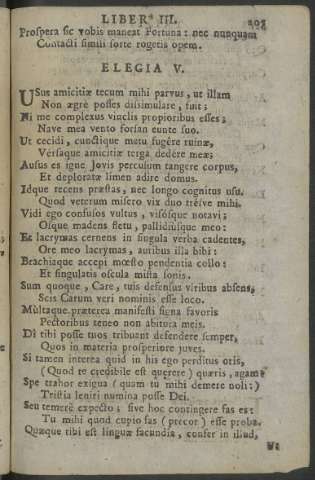 LIBER III. 203
Prospera sic vobis maneat Fortuna: nec nunquam
Contacti simili sorte rogetis opem.
ELEGIA V.
USus amicitiæ tecum mihi parvus, ut illam
Non ægrè posses dissimulare, fuit;
Ni me complexus vinclis propioribus esses;
Nave mea vento forsan eunte suo.
Ut cecidi, cunctique metu fugêre ruinæ,
Versaque amicitiæ terga dedêre meæ;
Ausus es igne Jovis percussum tangere corpus,
Et deploratæ limen adire domus.
Idque recens præstas, nec longo cognitus usu,
Quod veterum misero vix duo tresve mihi.
Vidi ego confusos vultus, visosque notavi;
Osque madens fletu, pallidiusque meo:
Et lacrymas cernens in singula verba cadentes,
Ore meo lacrymas, auribus illa bibi:
Brachiaque accepi mœsto pendentia collo:
Et singultatis oscula mista sonis.
Sum quoque, Care, tuis defensus viribus absens;
Scis Carum veri nominis esse loco.
Multaque præterea manifesti signa favoris
Pectoribus teneo non abitura meis.
Dî tibi posse tuos tribuant defendere semper,
Quos in materia prosperiore juves.
Si tamen interea quid in his ego perditus oris,
(Quod te credibile est quærere) quæris, agam:
Spe trahor exigua (quam tu mihi demere noli:)
Tristia leniri numina posse Dei.
Seu temerè expecto; sive hoc contingere fas est:
Tu mihi quod cupio fas (precor) esse proba.
Quæque tibi est linguæ facundia, confer in illud,